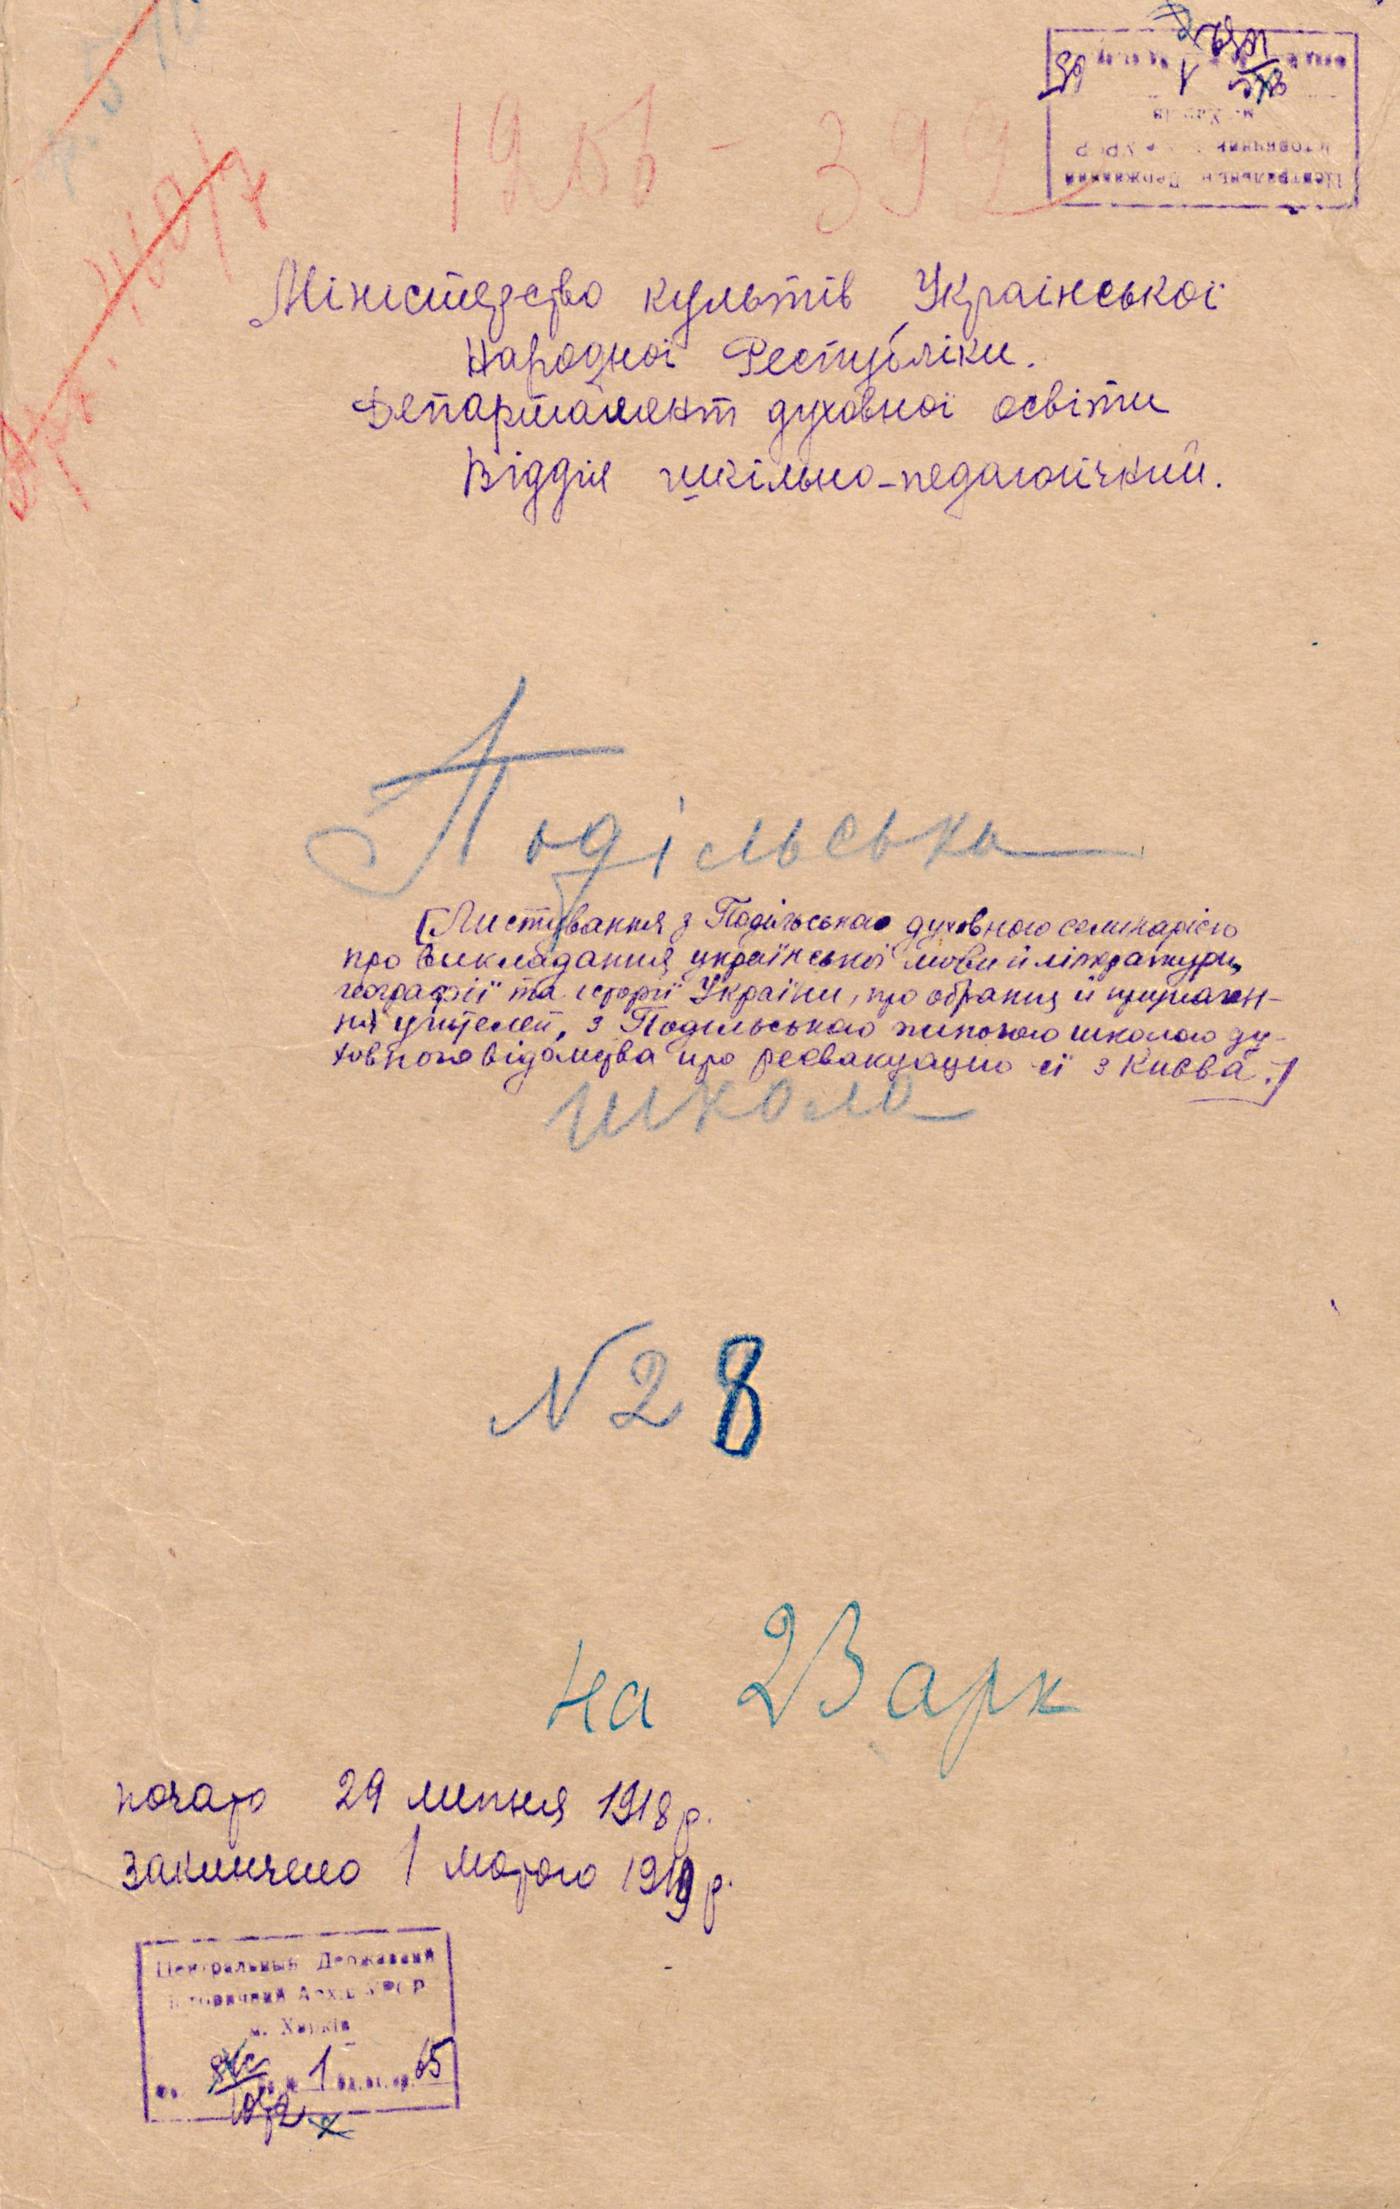 1206 - 392
Міністерство культів Української
Народної Республіки.
Департамент духовної освіти
Відділ шкільно-педагогічний.
Подільська
[Листування з Подільською духовною семінарією
про викладання української мови й літератури,
географії та історії України, про обрання й призначен-
ня учителей, з Подільською жіночою школою ду-
ховного відомства про реевакуацію її з Києва.]
школа
N 28
на 23 арк
почато 29 липня 1918 р.
закінчено 1 лютого 1919 р.
Центральный Державний
Історичний Архів УРСР
м. Харків
1 од. зб. 65